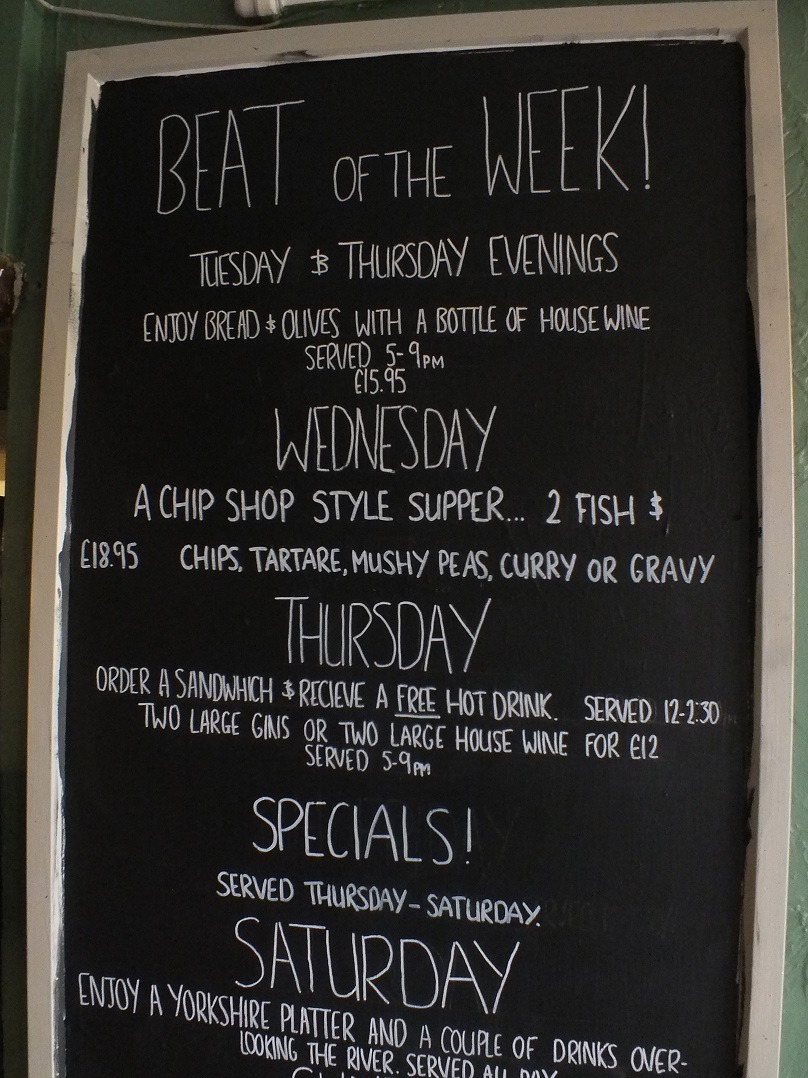 BEAT OF THE WEEK!
TUESDAY & THURSDAY EVENINGS
ENJOY BREAD & OLIVES WITH A BOTTLE OF HOUSE WINE
SERVED 5-9PM
£15.95
WEDNESDAY
A CHIP SHOP STYLE SUPPER... 2 FISH &
£18.95 CHIPS, TARTARE, MUSHY PEAS, CURRY OR GRAVY
THURSDAY
ORDER A SANDWHICH & RECIEVE A FREE HOT DRINK. SERVED 12-2:30
TWO LARGE GINS OR TWO LARGE HOUSE WINE FOR £12
SERVED 5-9pm
SPECIALS!
SERVED THURSDAY - SATURDAY.
SATURDAY
ENJOY A YORKSHIRE PLATTER AND A COUPLE OF DRINKS OVER-
LOOKING THE RIVER. SERVED ALL DAY